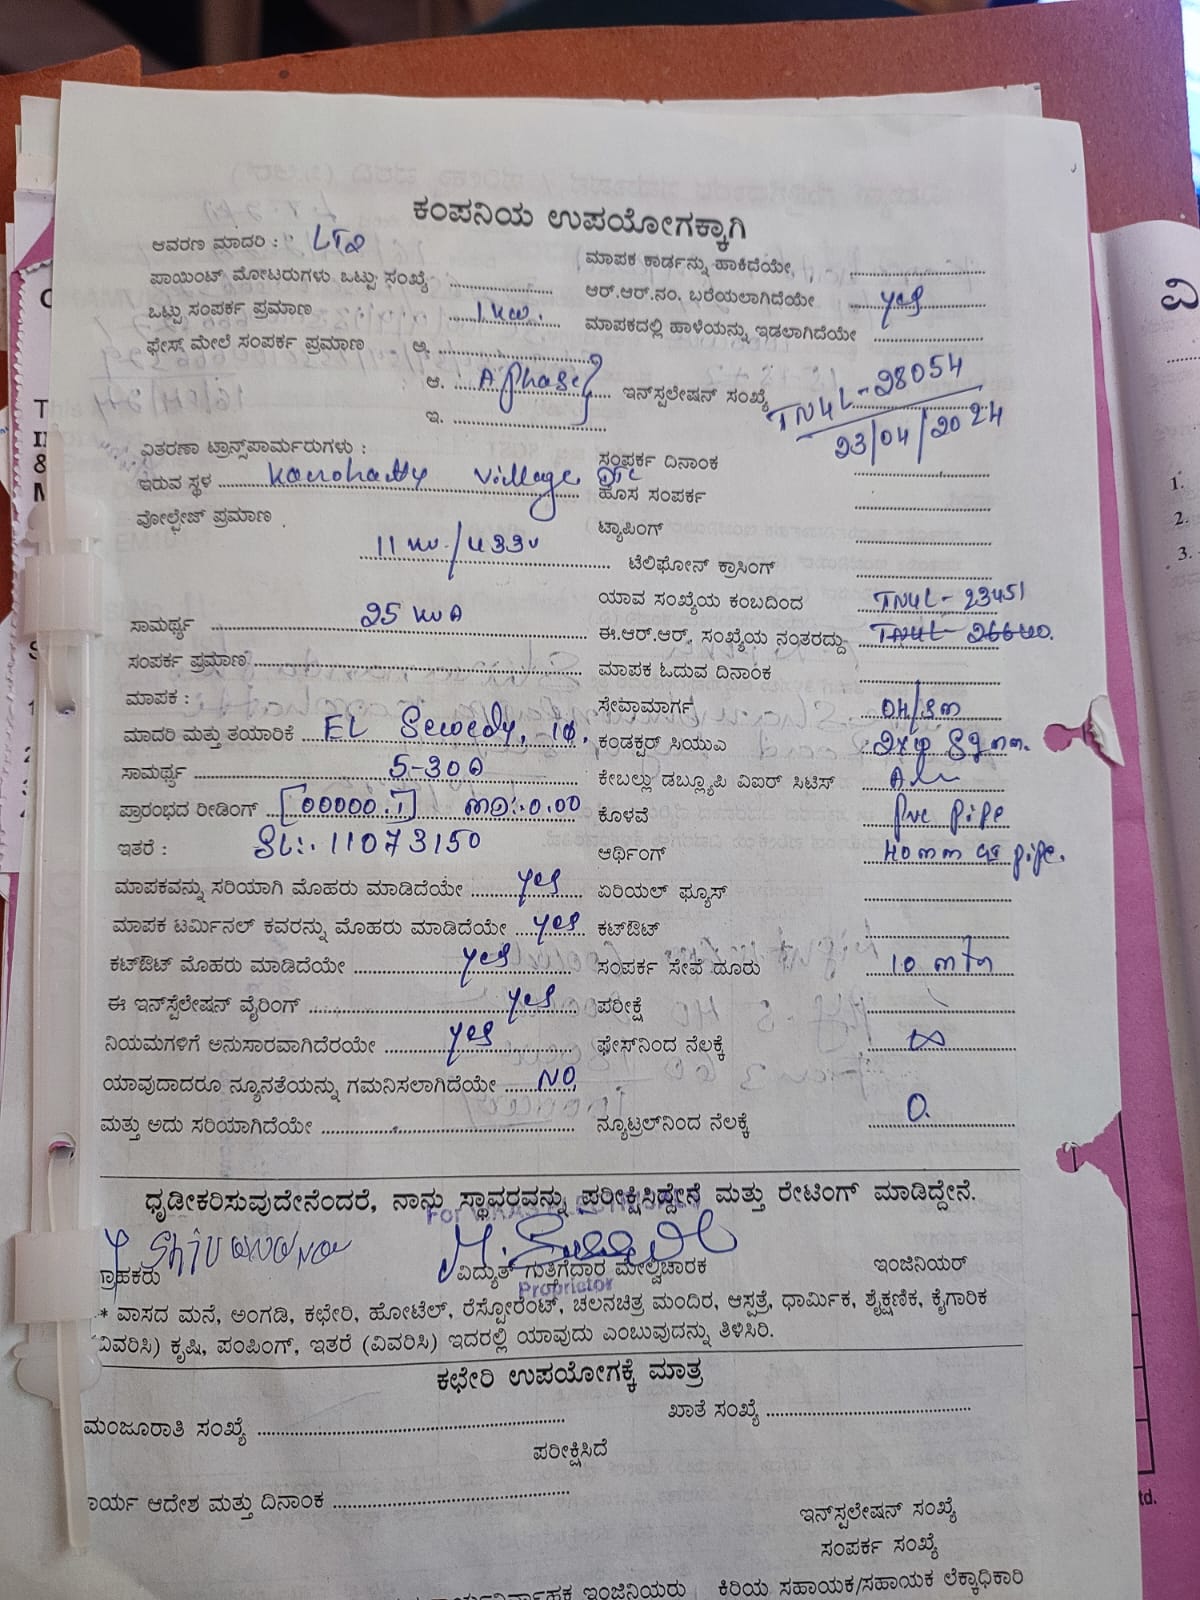 ಕಂಪನಿಯ ಉಪಯೋಗಕ್ಕಾಗಿ
ಆವರಣ ಮಾದರಿ : LT2
ಮಾಪಕ ಕಾರ್ಡನ್ನು ಹಾಕಿದೆಯೇ, ....................
ಪಾಯಿಂಟ್ ಮೋಟರುಗಳು ಒಟ್ಟು ಸಂಖ್ಯೆ ....................
ಆರ್.ಆರ್.ನಂ. ಬರೆಯಲಾಗಿದೆಯೇ yes
ಒಟ್ಟು ಸಂಪರ್ಕ ಪ್ರಮಾಣ 1kw.
ಮಾಪಕದಲ್ಲಿ ಹಾಳೆಯನ್ನು ಇಡಲಾಗಿದೆಯೇ ....................
ಫೇಸ್ ಮೇಲೆ ಸಂಪರ್ಕ ಪ್ರಮಾಣ ಅ. ....................
ಆ. A phase
ಇನ್‌ಸ್ಟಲೇಷನ್ ಸಂಖ್ಯೆ TN4L-28054
23/04/2024
ಇ. ....................
ವಿತರಣಾ ಟ್ರಾನ್ಸ್‌ಪಾರ್ಮರುಗಳು :
ಸಂಪರ್ಕ ದಿನಾಂಕ ....................
ಇರುವ ಸ್ಥಳ village
ಹೊಸ ಸಂಪರ್ಕ ....................
ವೋಲ್ಟೇಜ್ ಪ್ರಮಾಣ
ಟ್ಯಾಪಿಂಗ್ ....................
11 kv/433v
ಟೆಲಿಫೋನ್ ಕ್ರಾಸಿಂಗ್ ....................
ಯಾವ ಸಂಖ್ಯೆಯ ಕಂಬದಿಂದ TN4L-23451
ಸಾಮರ್ಥ್ಯ 25 KVA
ಈ.ಆರ್.ಆರ್. ಸಂಖ್ಯೆಯ ನಂತರದ್ದು TN4L-26640.
ಸಂಪರ್ಕ ಪ್ರಮಾಣ ....................
ಮಾಪಕ ಓದುವ ದಿನಾಂಕ ....................
ಮಾಪಕ :
ಸೇವಾಮಾರ್ಗ OH/
ಮಾದರಿ ಮತ್ತು ತಯಾರಿಕೆ EL Sewedy, 1φ,
ಕಂಡಕ್ಟರ್ ಸಿಯುಎ
ಸಾಮರ್ಥ್ಯ 5-30A
ಕೇಬಲ್ಲು ಡಬ್ಲ್ಯೂಪಿ ವಿಐರ್ ಸಿಟಿಸ್
ಪ್ರಾರಂಭದ ರೀಡಿಂಗ್ [00000.1] MD:-0.00
ಕೊಳವೆ Pvc pipe
ಇತರೆ : SL:. 11073150
ಆರ್ಥಿಂಗ್ 40mm GI pipe.
ಮಾಪಕವನ್ನು ಸರಿಯಾಗಿ ಮೊಹರು ಮಾಡಿದೆಯೇ yes
ಏರಿಯಲ್ ಫ್ಯೂಸ್ ....................
ಮಾಪಕ ಟರ್ಮಿನಲ್ ಕವರನ್ನು ಮೊಹರು ಮಾಡಿದೆಯೇ yes
ಕಟ್‌ಔಟ್ ....................
ಕಟ್‌ಔಟ್ ಮೊಹರು ಮಾಡಿದೆಯೇ yes
ಸಂಪರ್ಕ ಸೇವೆ ದೂರು 10 mtr
ಈ ಇನ್‌ಸ್ಟೆಲೇಷನ್ ವೈರಿಂಗ್ yes
ಪರೀಕ್ಷೆ ....................
ನಿಯಮಗಳಿಗೆ ಅನುಸಾರವಾಗಿದೆರಯೇ yes
ಫೇಸ್‌ನಿಂದ ನೆಲಕ್ಕೆ ∞
ಯಾವುದಾದರೂ ನ್ಯೂನತೆಯನ್ನು ಗಮನಿಸಲಾಗಿದೆಯೇ NO
ಮತ್ತು ಅದು ಸರಿಯಾಗಿದೆಯೇ ....................
ನ್ಯೂಟ್ರಲ್‌ನಿಂದ ನೆಲಕ್ಕೆ 0.
ಧೃಡೀಕರಿಸುವುದೇನೆಂದರೆ, ನಾನು ಸ್ಥಾವರವನ್ನು ಪರೀಕ್ಷಿಸಿದ್ದೇನೆ ಮತ್ತು ರೇಟಿಂಗ್ ಮಾಡಿದ್ದೇನೆ.
ಗ್ರಾಹಕರು
ವಿದ್ಯುತ್ ಗುತ್ತಿಗೆದಾರ ಮೇಲ್ವಿಚಾರಕ
ಇಂಜಿನಿಯರ್
Proprietor
* ವಾಸದ ಮನೆ, ಅಂಗಡಿ, ಕಛೇರಿ, ಹೋಟೆಲ್, ರೆಸ್ಟೋರೆಂಟ್, ಚಲನಚಿತ್ರ ಮಂದಿರ, ಆಸ್ಪತ್ರೆ, ಧಾರ್ಮಿಕ, ಶೈಕ್ಷಣಿಕ, ಕೈಗಾರಿಕ
(ವಿವರಿಸಿ) ಕೃಷಿ, ಪಂಪಿಂಗ್, ಇತರೆ (ವಿವರಿಸಿ) ಇದರಲ್ಲಿ ಯಾವುದು ಎಂಬುವುದನ್ನು ತಿಳಿಸಿರಿ.
ಕಛೇರಿ ಉಪಯೋಗಕ್ಕೆ ಮಾತ್ರ
ಮಂಜೂರಾತಿ ಸಂಖ್ಯೆ ....................
ಖಾತೆ ಸಂಖ್ಯೆ ....................
ಪರೀಕ್ಷಿಸಿದೆ
ಾರ್ಯ ಆದೇಶ ಮತ್ತು ದಿನಾಂಕ ....................
ಇನ್‌ಸ್ಟಲೇಷನ್ ಸಂಖ್ಯೆ
ಸಂಪರ್ಕ ಸಂಖ್ಯೆ
ಇಂಜಿನಿಯರು
ಕಿರಿಯ ಸಹಾಯಕ/ಸಹಾಯಕ ಲೆಕ್ಕಾಧಿಕಾರಿ